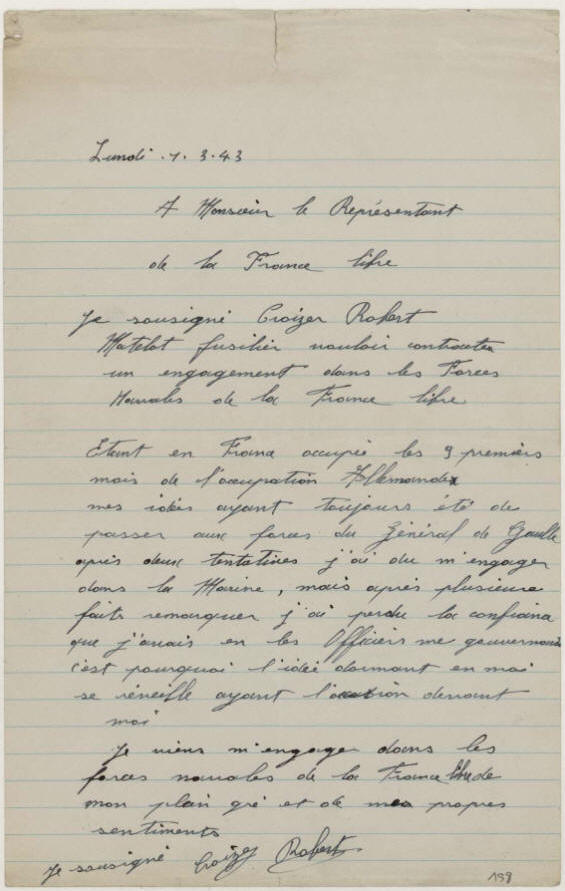 Lundi . 1 . 3 . 43
A Monsieur le Représentant
de la France libre
Je sousigné Croizer Robert
Matelot fusilier vouloir contracter
un engagement dans les Forces
Navales de la France libre
Etant en France occupée les 9 premiers
mois de l'occupation Allemande
mes idées ayant toujours été de
passer aux forces du Général de Gaulle
après deux tentatives j'ai du m'engager
dans la Marine, mais après plusieurs
faits remarquer j'ai perdu la confiance
que j'avais en les Officiers me gouvernant
c'est pourquoi l'idée dormant en moi
se réveille ayant l'occasion devant
moi
Je viens m'engager dans les
forces navales de la France libre de
mon plain gré et de mes propres
sentiments
Je sousigné Croizer Robert
198